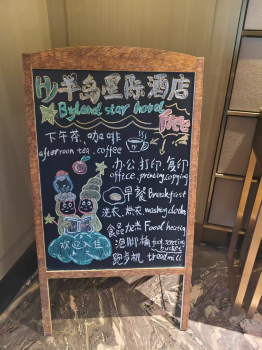 半岛星际酒店
Byland star hotel
Free
下午茶、咖啡
afternoon tea .coffee
办公、打印、复印
office, printing, copying
早餐 Breakfast
洗衣、烘衣 washing clothes
食品加热 Food heating
泡脚桶 foot soaking bucket
跑步机 treadmill
欢迎入住